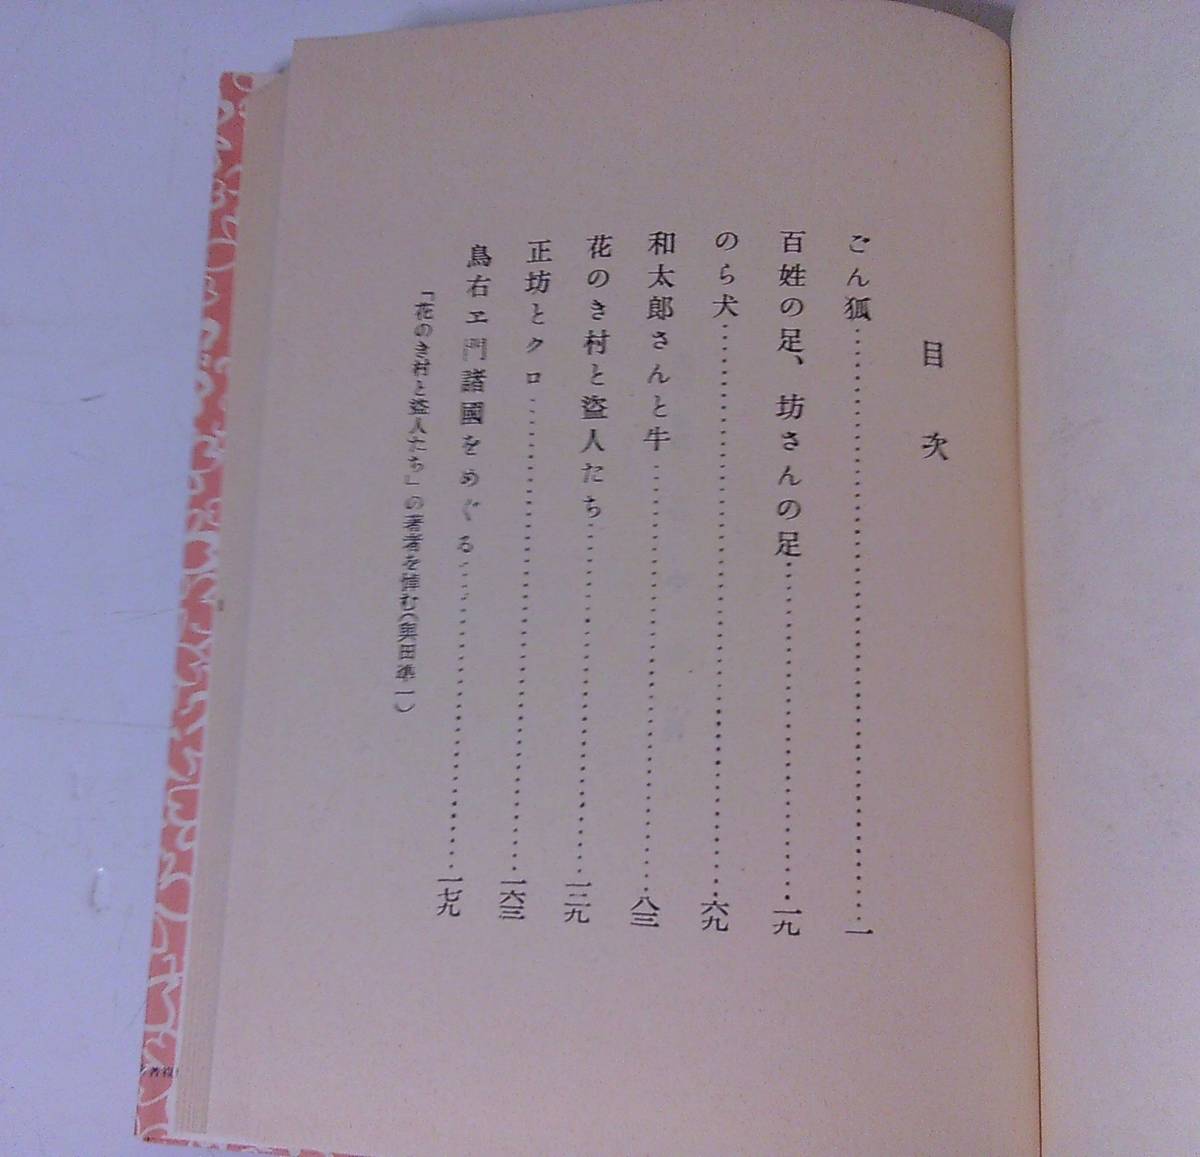 目次
ごん狐……一
百姓の足、坊さんの足……一九
のら犬……六九
和太郎さんと牛……八三
花のき村と盜人たち……一二九
正坊とクロ……一六三
鳥右ヱ門諸國をめぐる……一七九
「花のき村と盜人たち」の著者を悼む(與田凖一)